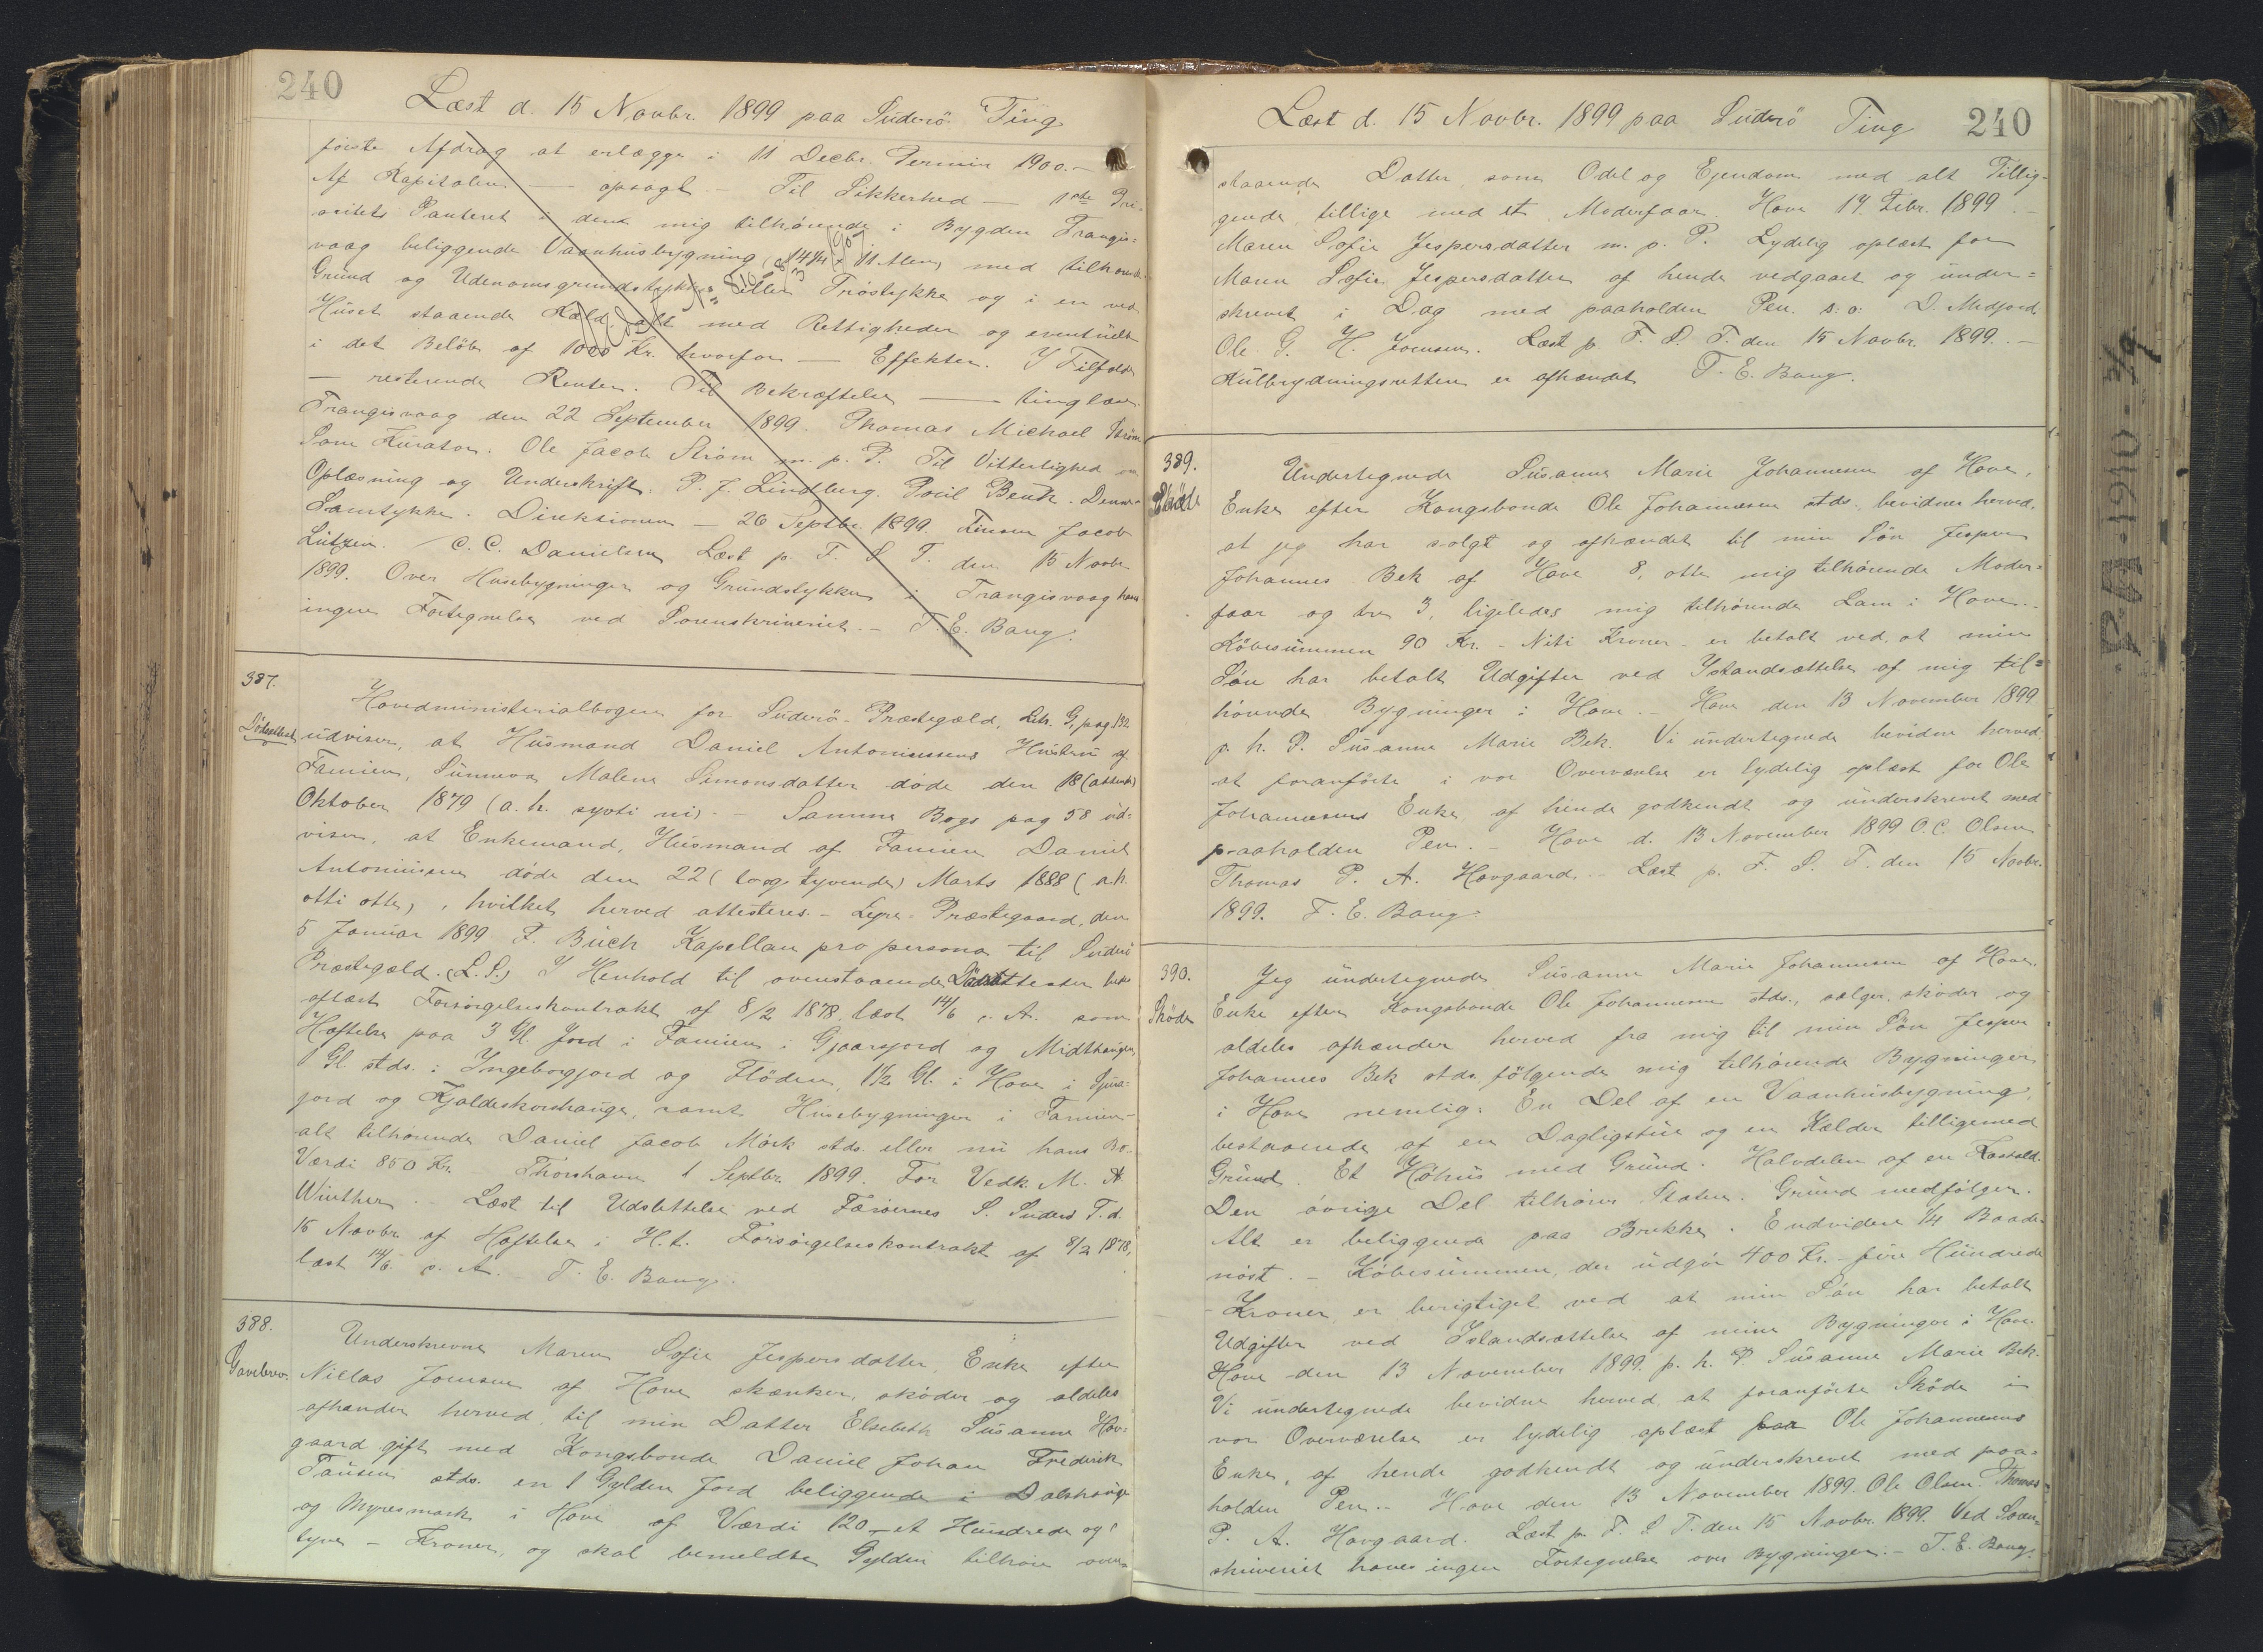 240
Læst d. 15 Novbr. 1899 paa Suderö Ting
förste Afdrag at erlægge i 11 Decbr. Termin 1900.-
Af Kapitalen - opsagt. - Til Sikkerhed - 1ste Pri-
oritets Panteret i den mig tilhörende i Bygden Trangis=
vaag beliggende Vaanhusbygning 11 Alen med
Grund og Udenomsgrundstykke eller Tröstykke og i en ved
Huset staaende alt med Rettigheder og eventuelt
i det Belöb af 1000 Kr. hvorfor - Effekter. I Tilfælde
- resterende Renter. Til Bekræftelse - tinglæses.
Trangisvaag den 22 September 1899. Thomas Michael Ström
Som Kurator. Ole Jacob Ström m. p. P. Til Vitterlighed om
Oplæsning og Underskrift. P. J. Lindberg. Poul Benk.
Samtykke. Direktionen - 26 Septbr. 1899 Jacob
Lützen. C. C. Danielsen Læst p. F. S. T. den 15 Novbr
1899. Over Husebygningen og Grundstykket i Trangisvaag haves
ingen Fortegnelse ved Sorenskriveriet. - T. E. Bang.
387.
Dödsattest
Hovedministerialbogen for Suderö-Præstegæld, Litr. G, pag 192
udviser, at Husmand Daniel Antoniussens Hustru af
Famien, Sunneva Malene Simonsdatter döde den 18 (attende)
Oktober 1879 (a. h. syvti ni). - Samme Bogs pag 58 ud=
viser, at Enkemand, Husmand af Famien Daniel
Antoniussen döde den 22 (to og tyvende) Marts 1888 (a.h.
otti otte), hvilket herved attesteres. - Præstegaard, den
5 Januar 1899 F. Büch Kapellan pro persona til Suderö
Præstegæld. (L. S.) I Henhold til ovenstaaende Dödsattester
aflæst Forsörgelseskontrakt af 8/2 1878, læst 14/6 s. A. som
Hæftelse paa 3 Gl. Jord i Famien i Gjaarsjord og Midthaugen,
1 Gl. stds. i Ingeborgjord og Flöden, 1½ Gl. i Hove i
jord og Kjaldeskorshauge, samt Husebygninger i Famien -
alt tilhörende Daniel Jacob Mörk stds. eller nu hans Bo.
Værdi 850 Kr. Thorshavn 1 Septbr. 1899. For Vedk. M. A.
Winther. - Læst til Udslettelse ved Færöernes S. Suderö T. d.
15 Novbr. af Hæftelse i H. t. Forsörgelseskontrakt af 8/2 1878,
læst 14/6 s. A. T. E. Bang.
388.
Gavebrev.
Underskrevne Maren Sofie Jespersdatter, Enke efter
Niclas Joensen af Hove skænker, sköder og aldeles
afhænder herved til min Datter Elsebeth Susanne Hov=
gaard gift med Kongsbonde Daniel Johan Frederik
Tausen stds. en 1 Gylden Jord beliggende i Dalshauge
og Myresmark i Hove af Værdi 120 - et Hundrede og
tyve - Kroner, og skal bemeldte Gylden tilhöre oven-
Læst d. 15 Novbr. 1899 paa Suderö Ting
240
staaende Datter som Odel og Ejendom med alt Tillig-
gende tillige med et Moderfaar. Hove 14 Febr. 1899. -
Maren Sofie Jespersdatter m. p. P. Lydelig oplæst for
Maren Sofie Jespersdatter af hende vedgaaet og under=
skrevet i Dag med paaholden Pen. s: o: D. Midjord
Ole G. H. Joensen. Læst p. F. S. T. den 15 Novbr. 1899. -
Kulbrydningsretten er afhændet T. E. Bang.
389.
Sköde
Undertegnede Susanne Marie Johannesen af Hove,
Enke efter Kongsbonde Ole Johannesen stds., bevidner herved,
at jeg har solgt og afhændet til min Sön Jesper
Johannes Bek af Hove 8, otte mig tilhörende Moder=
faar og tre 3, ligeledes mig tilhörende Lam i Hove. -
Köbesummen 90 Kr. - Niti Kroner - er betalt ved, at min
Sön har betalt Udgifter ved Istandsættelse af mig til=
hörende Bygninger i Hove. - Hove den 13 November 1899
p. h. P. Susanne Marie Bek. Vi undertegnede bevidne herved,
at foranförte i vor Overværelse er lydelig oplæst for Ole
Johannesens Enke, af hende godkendt og underskrevet med
paaholden Pen. - Hove d. 13 November 1899 O. C. Olsen
Thomas P. A. Hovgaard. - Læst p. F. S. T. den 15 Novbr.
1899. T. E. Bang.
390.
Sköde
Jeg undertegnede Susanne Marie Johannesen af Hove,
Enke efter Kongsbonde Ole Johannesen stds., sælger, sköder og
aldeles afhænder herved fra mig til min Sön Jesper
Johannes Bek stds. fölgende mig tilhörende Bygninger
i Hove nemlig: En Del af en Vaanhusbygning,
bestaaende af en Dagligstue og en Kælder tilligemed
Grund. Et Höhus med Grund. Halvdelen af en Kostald.
Den övrige Del tilhörer Staten. Grund medfölger.
Alt er beliggende paa Brekke. Endvidere ¼ Baade-
nöst. - Köbesummen, der udgör 400 Kr. - fire Hundrede
- Kroner, er berigtiget ved at min Sön har betalt
Udgifter ved Istandsættelse af mine Bygninger i Hove.
Hove den 13 November 1899. p. h. P. Susanne Marie Bek.
Vi undertegnede bevidne herved, at foranförte Sköde i
vor Overværelse er lydelig oplæst for Ole Johannesens
Enke, af hende godkendt og underskrevet med paa=
holden Pen. - Hove den 13 November 1899. Ole Olsen. Thomas
P. A. Hovgaard. Læst p. F. S. T. den 15 Novbr. 1899. Ved Soren=
skriveriet haves ingen Fortegnelse over Bygninger. - T. E. Bang.